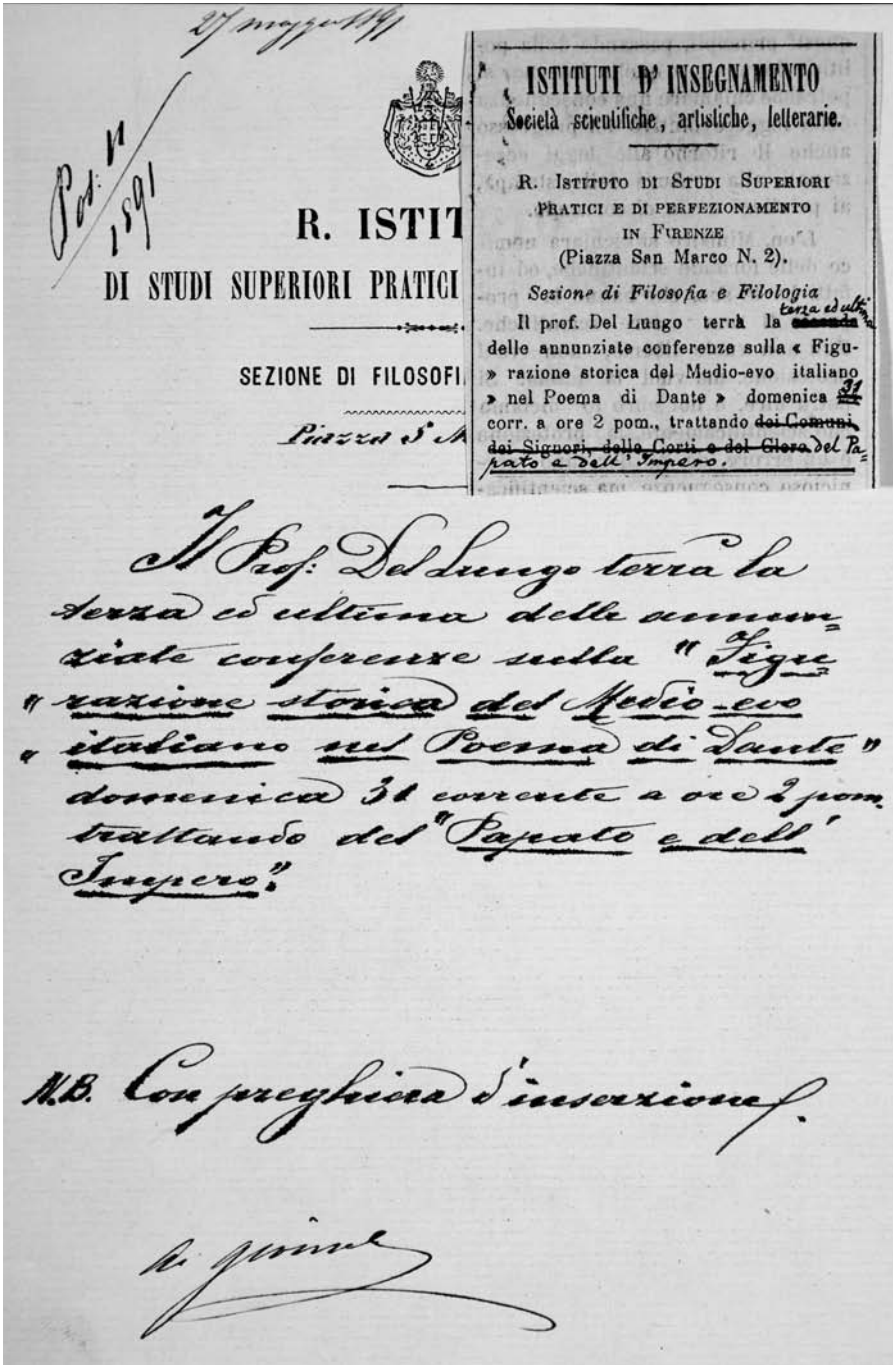 27 maggio 1891
Pos: V
1891
R. ISTIT
DI STUDI SUPERIORI PRATICI
SEZIONE DI FILOSOFI
Piazza S. M
ISTITUTI D'INSEGNAMENTO
Società scientifiche, artistiche, letterarie.
R. ISTITUTO DI STUDI SUPERIORI
PRATICI E DI PERFEZIONAMENTO
IN FIRENZE
(Piazza San Marco N. 2).
Sezione di Filosofia e Filologia
terza ed ultima
Il prof. Del Lungo terrà la seconda
delle annunziate conferenze sulla « Figu-
» razione storica del Medio-evo italiano
» nel Poema di Dante » domenica 31
corr. a ore 2 pom., trattando dei Comuni,
dei Signori, delle Corti e del Clero del Pa-
pato e dell'Impero.
Il Prof: Del Lungo terrà la
terza ed ultima delle annun=
ziate conferenze sulla "Figu
"razione storica del Medio-evo
"italiano nel Poema di Dante"
domenica 31 corrente a ore 2 pom.
trattando del "Papato e dell'
Impero".
N.B. Con preghiera d'inserzione.
Ai giornali